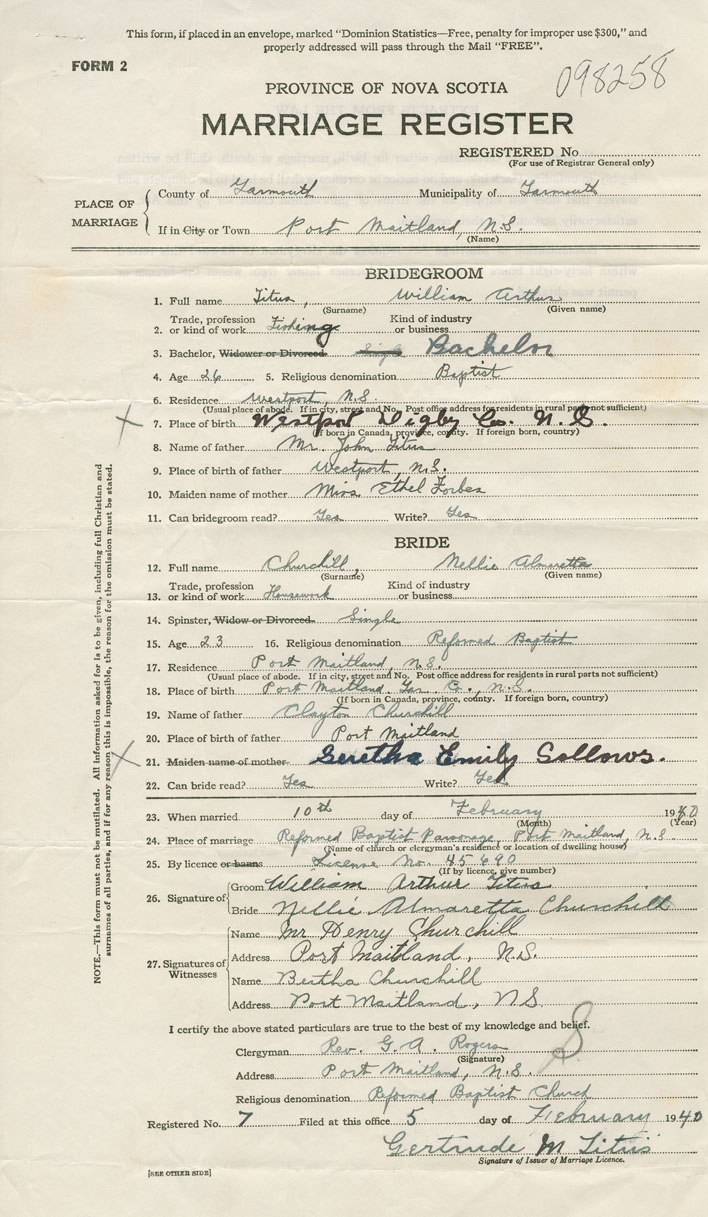 This form, if placed in an envelope, marked "Dominion Statistics—Free, penalty for improper use $300," and
properly addressed will pass through the Mail "FREE".
FORM 2
098258
PROVINCE OF NOVA SCOTIA
MARRIAGE REGISTER
REGISTERED No
(For use of Registrar General only)
PLACE OF MARRIAGE
County of Yarmouth Municipality of Yarmouth
If in City or Town Port Maitland, N.S.
(Name)
BRIDEGROOM
1. Full name Titus, William Arthur
(Surname) (Given name)
2. Trade, profession or kind of work Fishing Kind of industry or business
3. Bachelor, Widower or Divorced Single Bachelor
4. Age 26 5. Religious denomination Baptist
6. Residence Westport, N.S.
(Usual place of abode. If in city, street and No. Post office address for residents in rural parts not sufficient)
7. Place of birth Westport Digby Co. N.S.
(If born in Canada, province, county. If foreign born, country)
8. Name of father Mr. John Titus
9. Place of birth of father Westport, N.S.
10. Maiden name of mother Miss Ethel Forbes
11. Can bridegroom read? Yes Write? Yes
BRIDE
12. Full name Churchill, Nellie Almaretta
(Surname) (Given name)
13. Trade, profession or kind of work Housework Kind of industry or business
14. Spinster, Widow or Divorced Single
15. Age 23 16. Religious denomination Reformed Baptist
17. Residence Port Maitland, N.S.
(Usual place of abode. If in city, street and No. Post office address for residents in rural parts not sufficient)
18. Place of birth Port Maitland Yar Co., N.S.
(If born in Canada, province, county. If foreign born, country)
19. Name of father Clayton Churchill
20. Place of birth of father Port Maitland
21. Maiden name of mother Geretha Emily Sollows.
22. Can bride read? Yes Write? Yes
23. When married 10th day of February 1940
(Month) (Year)
24. Place of marriage Reformed Baptist Parsonage, Port Maitland, N.S
(Name of church or clergyman's residence or location of dwelling house)
25. By licence or banns License No. 45690
(If by licence, give number)
26. Signature of
Groom William Arthur Titus
Bride Nellie Almaretta Churchill
27. Signatures of Witnesses
Name Mr Henry Churchill
Address Port Maitland, N.S.
Name Bertha Churchill
Address Port Maitland, N.S.
I certify the above stated particulars are true to the best of my knowledge and belief.
Clergyman Rev. G. A. Rogers
(Signature)
Address Port Maitland, N.S.
Religious denomination Reformed Baptist Church
Registered No. 7 Filed at this office 5 day of February 1940
Gertrude M Titus
Signature of Issuer of Marriage Licence.
[SEE OTHER SIDE]
NOTE.—This form must not be mutilated. All information asked for is to be given, including full Christian and
surnames of all parties, and if for any reason this is impossible, the reason for the omission must be stated.